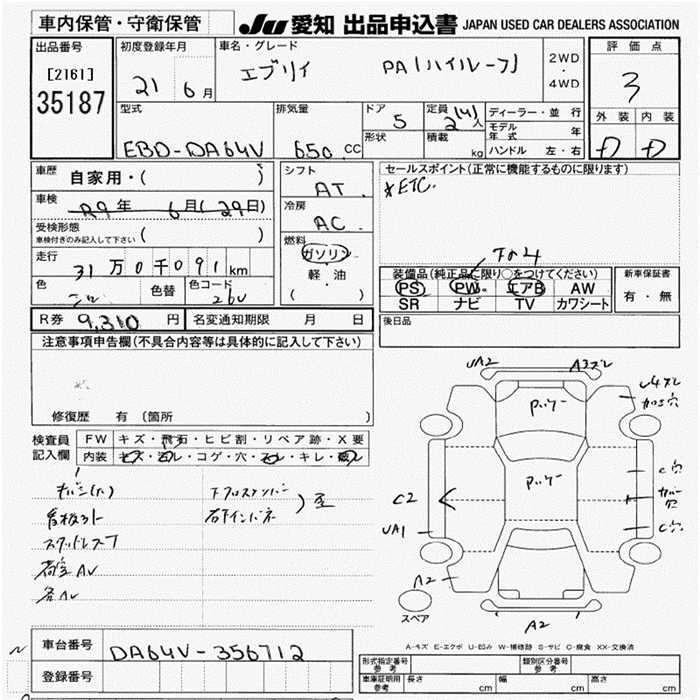 車内保管・守衛保管
JU 愛知 出品申込書 JAPAN USED CAR DEALERS ASSOCIATION
出品番号
[2161]
35187
初度登録年月
21 6月
車名・グレード
エブリィ PA(ハイルーフ)
2WD
・
4WD
評価点
3
外装 内装
D D
型式
EBD-DA64V
排気量
650 cc
ドア
5
形状
定員
2(4)人
積載
kg
ディーラー・並行
モデル年式 年
ハンドル 左・右
車歴
自家用・( )
車検
R9年 6月(29日)
受検形態
車検付きのみ記入して下さい ( )
走行
31万0千091km
色 色替 色コード
26U
シフト
AT
冷房
AC
燃料
ガソリン
軽・油
( )
セールスポイント(正常に機能するものに限ります)
*ETC.
装備品(純正品に限り○をつけてください)
PS PW エアB AW
SR ナビ TV カワシート
新車保証書
有・無
R券 9,310円 名変通知期限 月 日
後日品
注意事項申告欄(不具合内容等は具体的に記入して下さい)
修復歴 有 (箇所
検査員
記入欄
FW キズ・飛石・ヒビ割・リペア跡・X要
内装 キズ・汚レ・コゲ・穴・スレ・キレ・破レ
看板跡
スタッドレス
荷室AU
各AU
下フロスメンバー
右下インパネ
UA2 A3
C2
UA1
A2
A2
C穴
C穴
スペア
A-キズ E-エクボ U-凹み W-補修跡 S-サビ C-腐食 XX-交換済
車台番号 DA64V-356712
登録番号
形式指定番号 参考 類別区分番号 参考
車庫証明用 参考 長さ cm 幅 cm 高さ cm